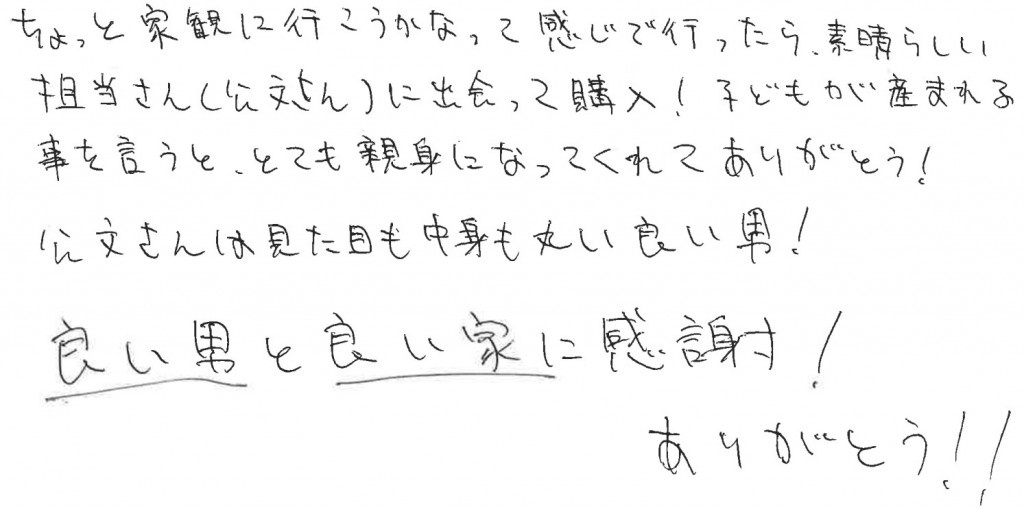 ちょっと家観に行こうかなって感じで行ったら、素晴らしい
担当さん(公文さん)に出会って購入!子どもが産まれる
事を言うと、とても親身になってくれてありがとう!
公文さんは見た目も中身も丸い良い男!
良い男と良い家に感謝!
ありがとう!!